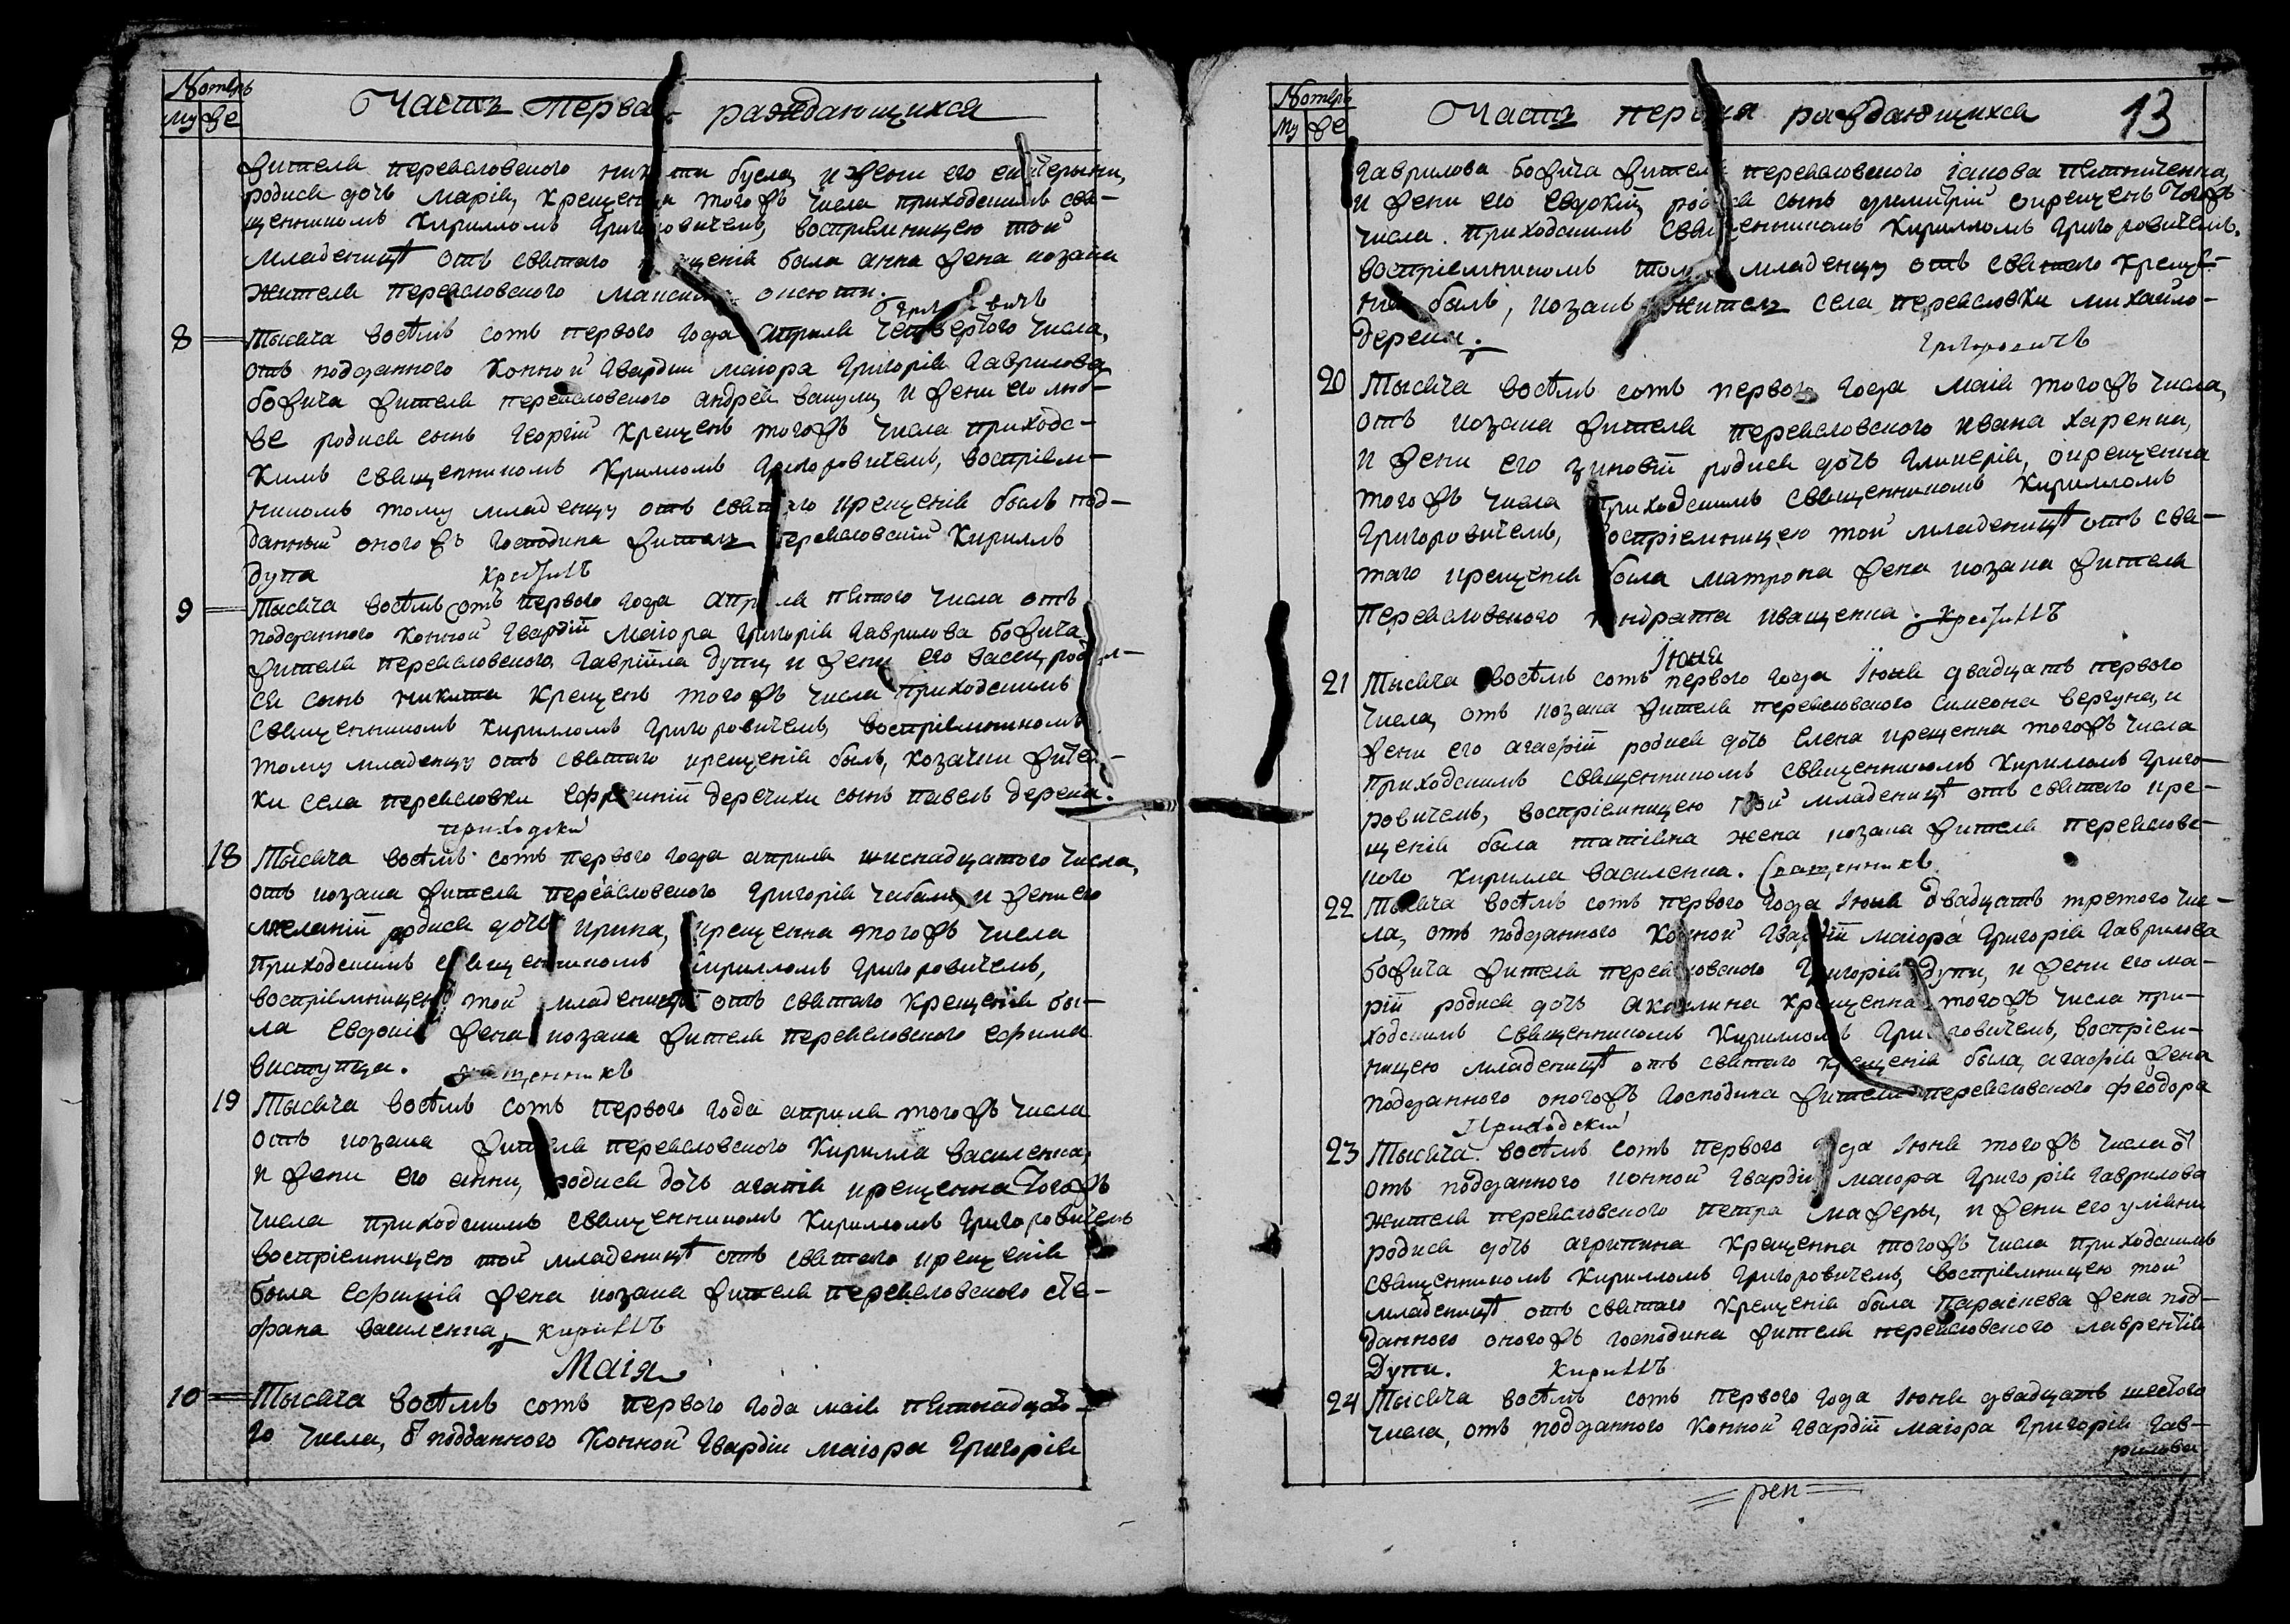 Номеръ
Му Же
Часть Перва раждающихся
жителя переясловского никити бусла, и жени его екатерини,
родися дочь марія, крещенна тогожъ числа приходскимъ свя-
щенникомъ Кирилломъ Григоровичемъ, восприемницею той
младеницѣ отъ святаго крещенія была анна жена козака
жителя переясловского Максима
Григоровичъ
8 Тысяча восѣмъ сотъ первого года априля четвертого числа,
отъ подданного Конной Гвардіи маіора Григорія Гаврилова
божича жителя переясловского андрея вакули, и жени его люб-
ве родися сынъ Георгій крещенъ тогожъ числа приходс-
кимъ священникомъ Криломъ Григоровичемъ, восприем-
никомъ тому младенцу отъ святаго крещенія былъ под-
данный оногожъ Господина житель переясловскій Кириллъ
дупа
9 Тысяча восѣмъ сотъ первого года априля пятого числа отъ
подданного Конной Гвардій маіора Григорія Гаврилова божича
жителя переясловского Гавріила дупи, и жени его васси, роди-
ся сынъ никита крещенъ тогожъ числа приходскимъ
священникомъ Кирилломъ Григоровичемъ, восприемникомъ
тому младенцу отъ святаго крещенія былъ, козачки жител-
ки села переясловки Ефросиній деречихи сынъ павелъ дерека.
приходскій
18 Тысяча восѣмъ сотъ первого года априля шиснадцатого числа,
отъ козака жителя переясловского Григорія и жени его
меланій родися дочь ирина, крещенна тогожъ числа
приходскимъ священникомъ Кирилломъ Григоровичемъ,
восприемницею той младеницѣ отъ святаго крещенія бы-
ла Евдокія жена козака жителя переясловского ефима
виступца. священникъ
19 Тысяча восѣмъ сотъ первого года априля тогожъ числа
отъ козака жителя переясловского Кирилла василенка,
и жени его анни, родися дочь агапія крещенна тогожъ
числа приходскимъ священникомъ Кирилломъ Григоровичемъ
восприемницею той младеницѣ отъ святаго крещенія
была ефимія жена козака жителя переясловского сте-
фана василенка, Кириллъ
Маія
10 Тысяча восѣмъ сотъ первого года маія пятнадцато-
го числа, ѿ подданного Конной Гвардіи маіора Григорія
Номеръ
Му Же
Часть первая раждающихся 13
Гаврилова божича жителя переясловского іакова пятниченка,
и жени его Евдокій, родися сынъ димитрій окрещенъ тогожъ
числа приходскимъ священникомъ Кирилломъ Григоровичемъ.
восприемникомъ тому младенцу отъ святаго креще-
нія былъ, козакъ житель села переясловки михайло
дерека. Григоровичъ
20 Тысяча восѣмъ сотъ первого года маія тогожъ числа,
отъ козака жителя переясловского ивана харенка,
и жени его зиновій родися дочь Гликерія, окрещенна
тогожъ числа приходскимъ священникомъ Кирилломъ
Григоровичемъ, восприемницею той младеницѣ отъ свя-
таго крещенія была матрона жена козака жителя
переясловского кондрата иващенка.
Іюня
21 Тысяча восѣмъ сотъ первого года Іюня двадцать первого
числа, отъ козака жителя переясловского симеона вергуна, и
жени его агафій родися дочь Елена крещенна тогожъ числа
приходскимъ священникомъ священникомъ Кирилломъ Григо-
ровичемъ, восприемницею той младеницѣ отъ святаго кре-
щенія была татіяна жена козака жителя переяслове-
кого Кирилла василенка. Священникъ
22 Тысяча восѣмъ сотъ первого года Іюня двадцать третого чис-
ла, отъ подданного Конной Гвардій маіора Григорія Гаврилова
божича жителя переясловского Григорія Дупи, и жени его ма-
рій родися дочь акилина крещенна тогожъ числа при-
ходскимъ священникомъ Кирилломъ Григоровичемъ, восприем-
ницею младеницѣ отъ святаго крещенія была, агафія жена
подданного оногожъ господина жителя переясловского феодора
Приходскій
23 Тысяча восѣмъ сотъ первого года Іюня тогожъ числа
отъ подданного Конной Гвардіи маіора Григорія Гаврилова
жителя переясловского петра мажеры, и жени его уляни
родися дочь агрипина крещенна тогожъ числа приходскимъ
священникомъ Кирилломъ Григоровичемъ, восприемницею той
младеницѣ отъ святаго крещенія была Параскева жена под-
данного оногожъ господина жителя переясловского лаврентія
Дупи. Кириллъ
24 Тысяча восѣмъ сотъ первого года Іюня двадцать шестого
числа, отъ подданного Конной Гвардій маіора Григорія Гав-
рилова